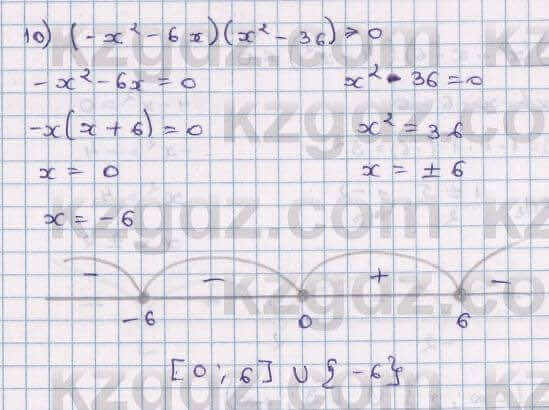 10) (-x² - 6x)(x² - 36) ≥ 0
-x² - 6x = 0
x² - 36 = 0
-x(x + 6) = 0
x² = 36
x = 0
x = ± 6
x = -6
- - + -
-6 0 6
[0; 6] ∪ {-6}
kzgdz.com